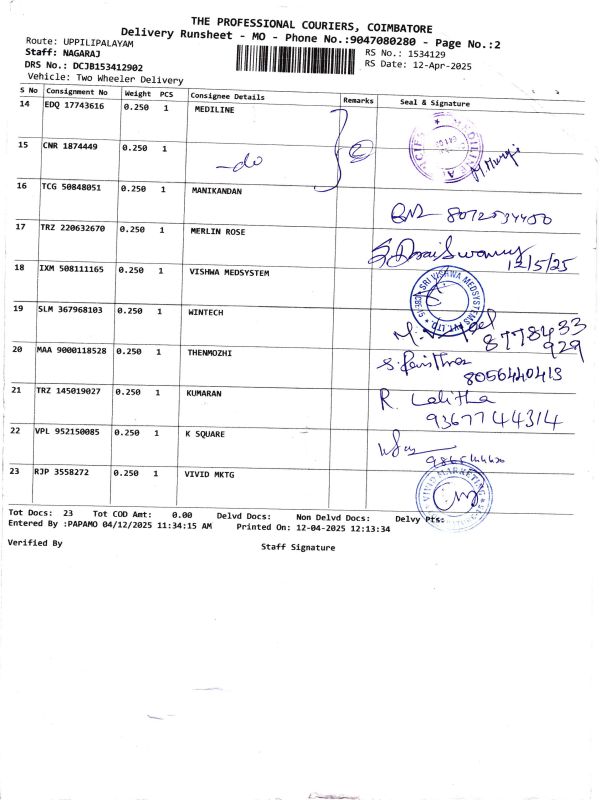 THE PROFESSIONAL COURIERS, COIMBATORE
Delivery Runsheet - MO - Phone No.:9047080280 - Page No.:2
Route: UPPILIPALAYAM
Staff: NAGARAJ RS No.: 1534129
DRS No.: DCJB153412902 RS Date: 12-Apr-2025
Vehicle: Two Wheeler Delivery
S No Consignment No Weight PCS Consignee Details Remarks Seal & Signature
14 EDQ 17743616 0.250 1 MEDILINE
15 CNR 1874449 0.250 1 -do
16 TCG 50848051 0.250 1 MANIKANDAN
17 TRZ 220632670 0.250 1 MERLIN ROSE 12/5/25
18 IXM 508111165 0.250 1 VISHWA MEDSYSTEM SRI VISHWA MEDSYSTEMS PVT. LTD
19 SLM 367968103 0.250 1 WINTECH 8778433
929
20 MAA 9000118528 0.250 1 THENMOZHI
8056440413
21 TRZ 145019027 0.250 1 KUMARAN R. Lalitha
9367744314
22 VPL 952150085 0.250 1 K SQUARE
23 RJP 3558272 0.250 1 VIVID MKTG VIVID MARKETING
Tot Docs: 23 Tot COD Amt: 0.00 Delvd Docs: Non Delvd Docs: Delvy Pts:
Entered By :PAPAMO 04/12/2025 11:34:15 AM Printed On: 12-04-2025 12:13:34
Verified By Staff Signature